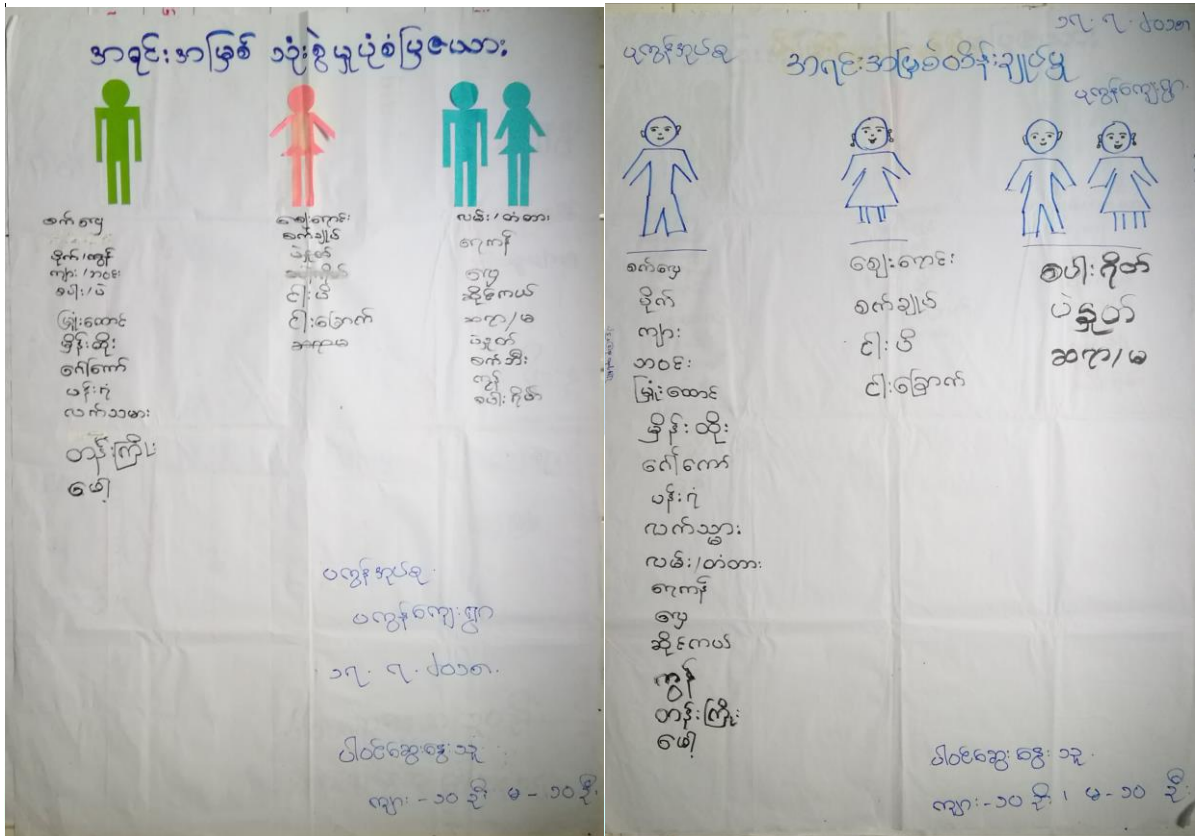 အရင်းအမြစ် သုံးစွဲမှုပုံစံပြဇယား
စက်လှေ
ပိုက်/ကွန်
ကျား/ဘဝင်း
စပါး/ပဲ
မြှုံးထောင်
မှိန်းထိုး
ဂေါ်တော်
ပန်းရံ
လက်သမား
တန်းကြိုး
ဖေါ့
ဈေးရောင်း
စက်ချုပ်
ပဲနှုတ်
ငါးပိ
ငါးခြောက်
ဆရာမ
လမ်း/တံတား
ရေကန်
လှေ
ဆိုင်ကယ်
ဆရာ/မ
ပဲနှုတ်
စက်ဘီး
ကွန်
စပါးရိတ်
ပကွန်အုပ်စု
ပကွန်ကျေးရွာ
၁၇.၇.၂၀၁၈
ပါဝင်ဆွေးနွေးသူ
ကျား - ၁၀ ဦး မ - ၁၀ ဦး
၁၇.၇.၂၀၁၈
ပုကွန်အုပ်စု
အရင်းအမြစ်ထိန်းချုပ်မှု
ပုကွန်ကျေးရွာ
စက်လှေ
ပိုက်
ကျား
ဘဝင်း
မြှုံးထောင်
မှိန်းထိုး
ဂေါ်တော်
ပန်းရံ
လက်သ္မား
လမ်း/တံတား
ရေကန်
လှေ
ဆိုင်ကယ်
ကွန်
တန်းကြိုး
ဖေါ့
ဈေးရောင်း
စက်ချုပ်
ငါးပိ
ငါးခြောက်
စပါးရိတ်
ပဲနှုတ်
ဆရာ/မ
ပါဝင်ဆွေးနွေးသူ
ကျား - ၁၀ ဦး၊ မ - ၁၀ ဦး